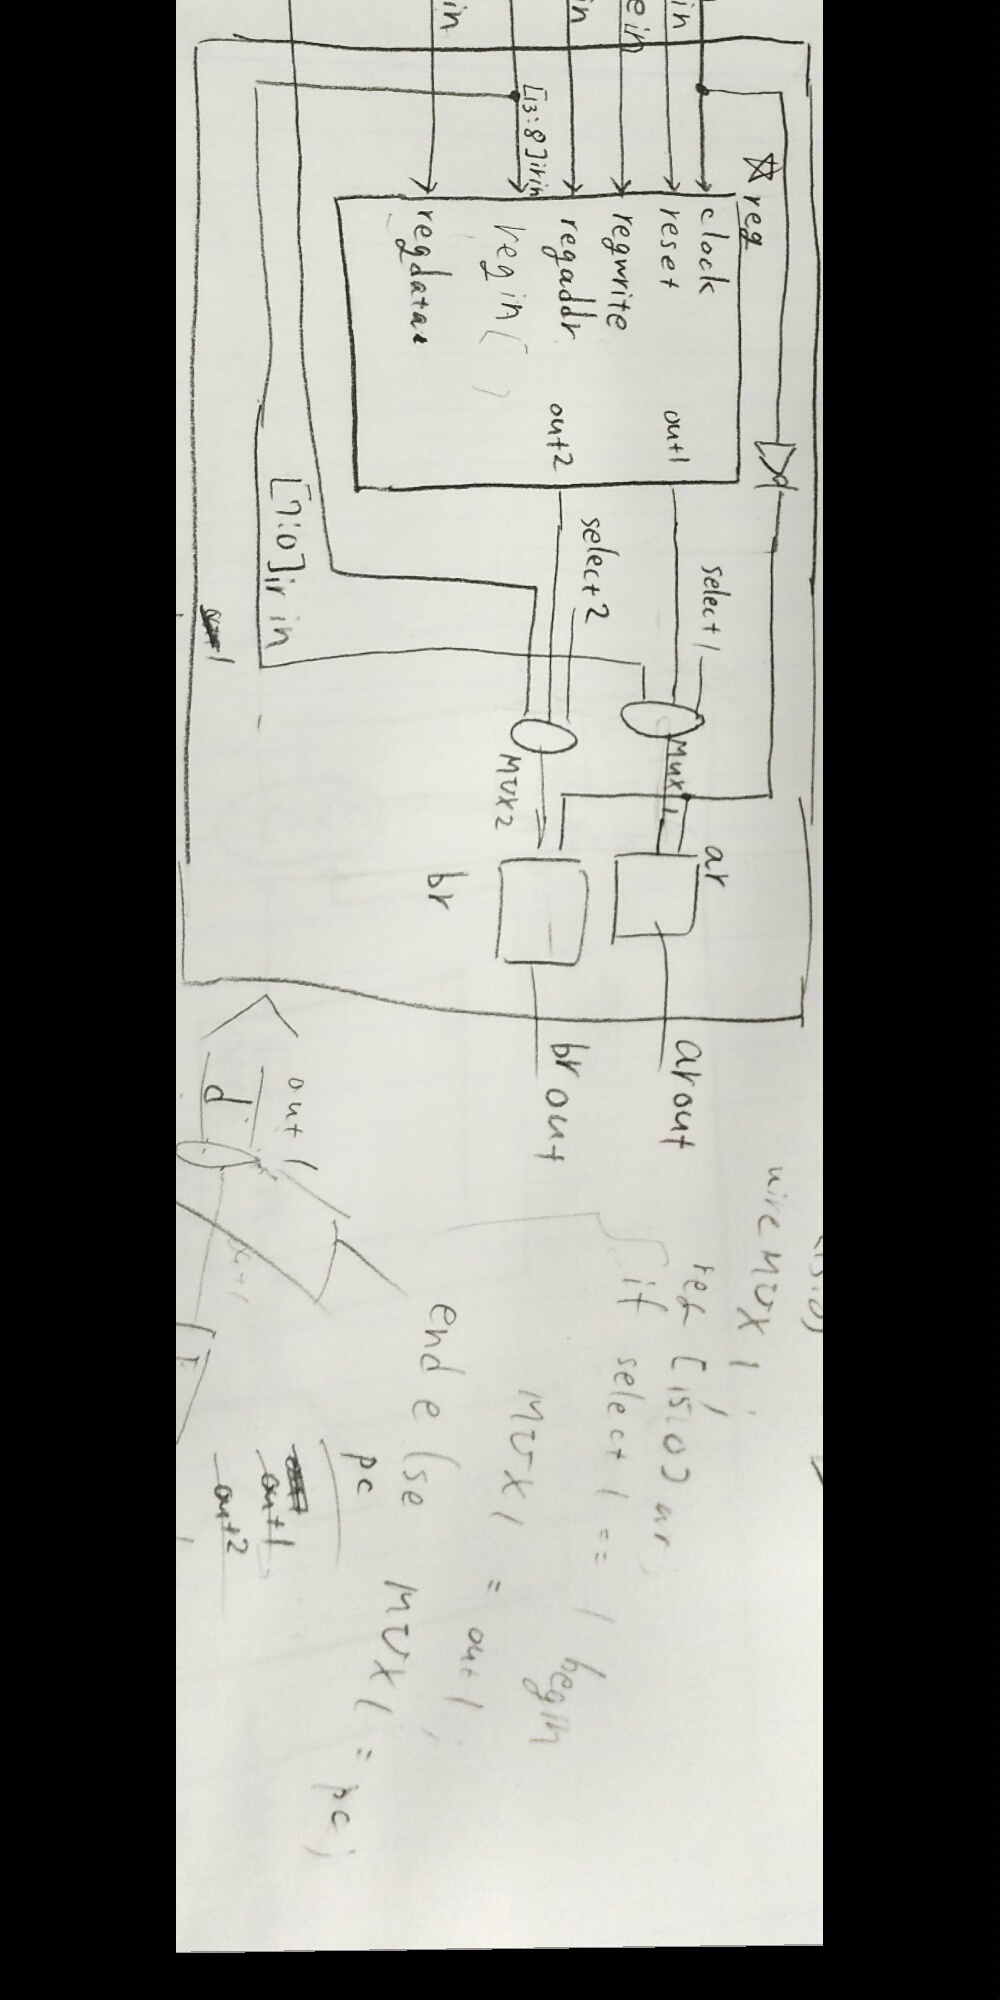 in
e in
in
in
[13:8]irin
☆ reg
clock
reset
regwrite
regaddr
regin( )
regdata
out1
out2
select1
select2
[7:0]irin
MUX1
MUX2
ar
br
arout
brout
out1
d
wire MUX1;
reg [15:0] ar;
if select1 == 1 begin
MUX1 = out1;
end else
MUX1 = pc;
pc
out1
out2